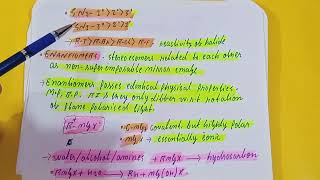 SN2 - 1° > 2° > 3°
SN1 - 1° > 2° > 3°
R-I > R-Br > R-Cl > R-F reactivity of halide
• ENANTIOMERS - stereoisomers related to each other
as non-super imposable mirror image
• Enantiomers posses identical physical properties -
MP, B.P, R.I, they only differ wrt rotation
of plane polarised light.
R - MgX
C-Mg, covalent but highly polar
Mg-X → essentially ionic
→ water/alcohol/amines + RMgX → hydrocarbon
• RMgX + H2O → RH + Mg(OH)X